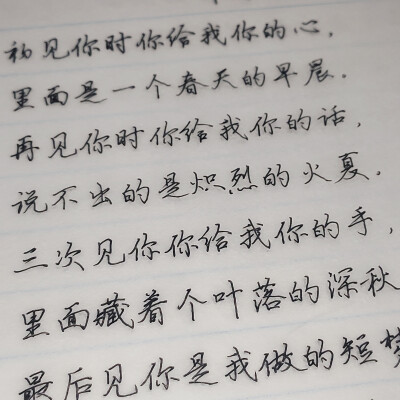 初见你时你给我你的心，
里面是一个春天的早晨．
再见你时你给我你的话，
说不出的是炽烈的火夏．
三次见你你给我你的手，
里面藏着个叶落的深秋
最后见你是我做的短梦